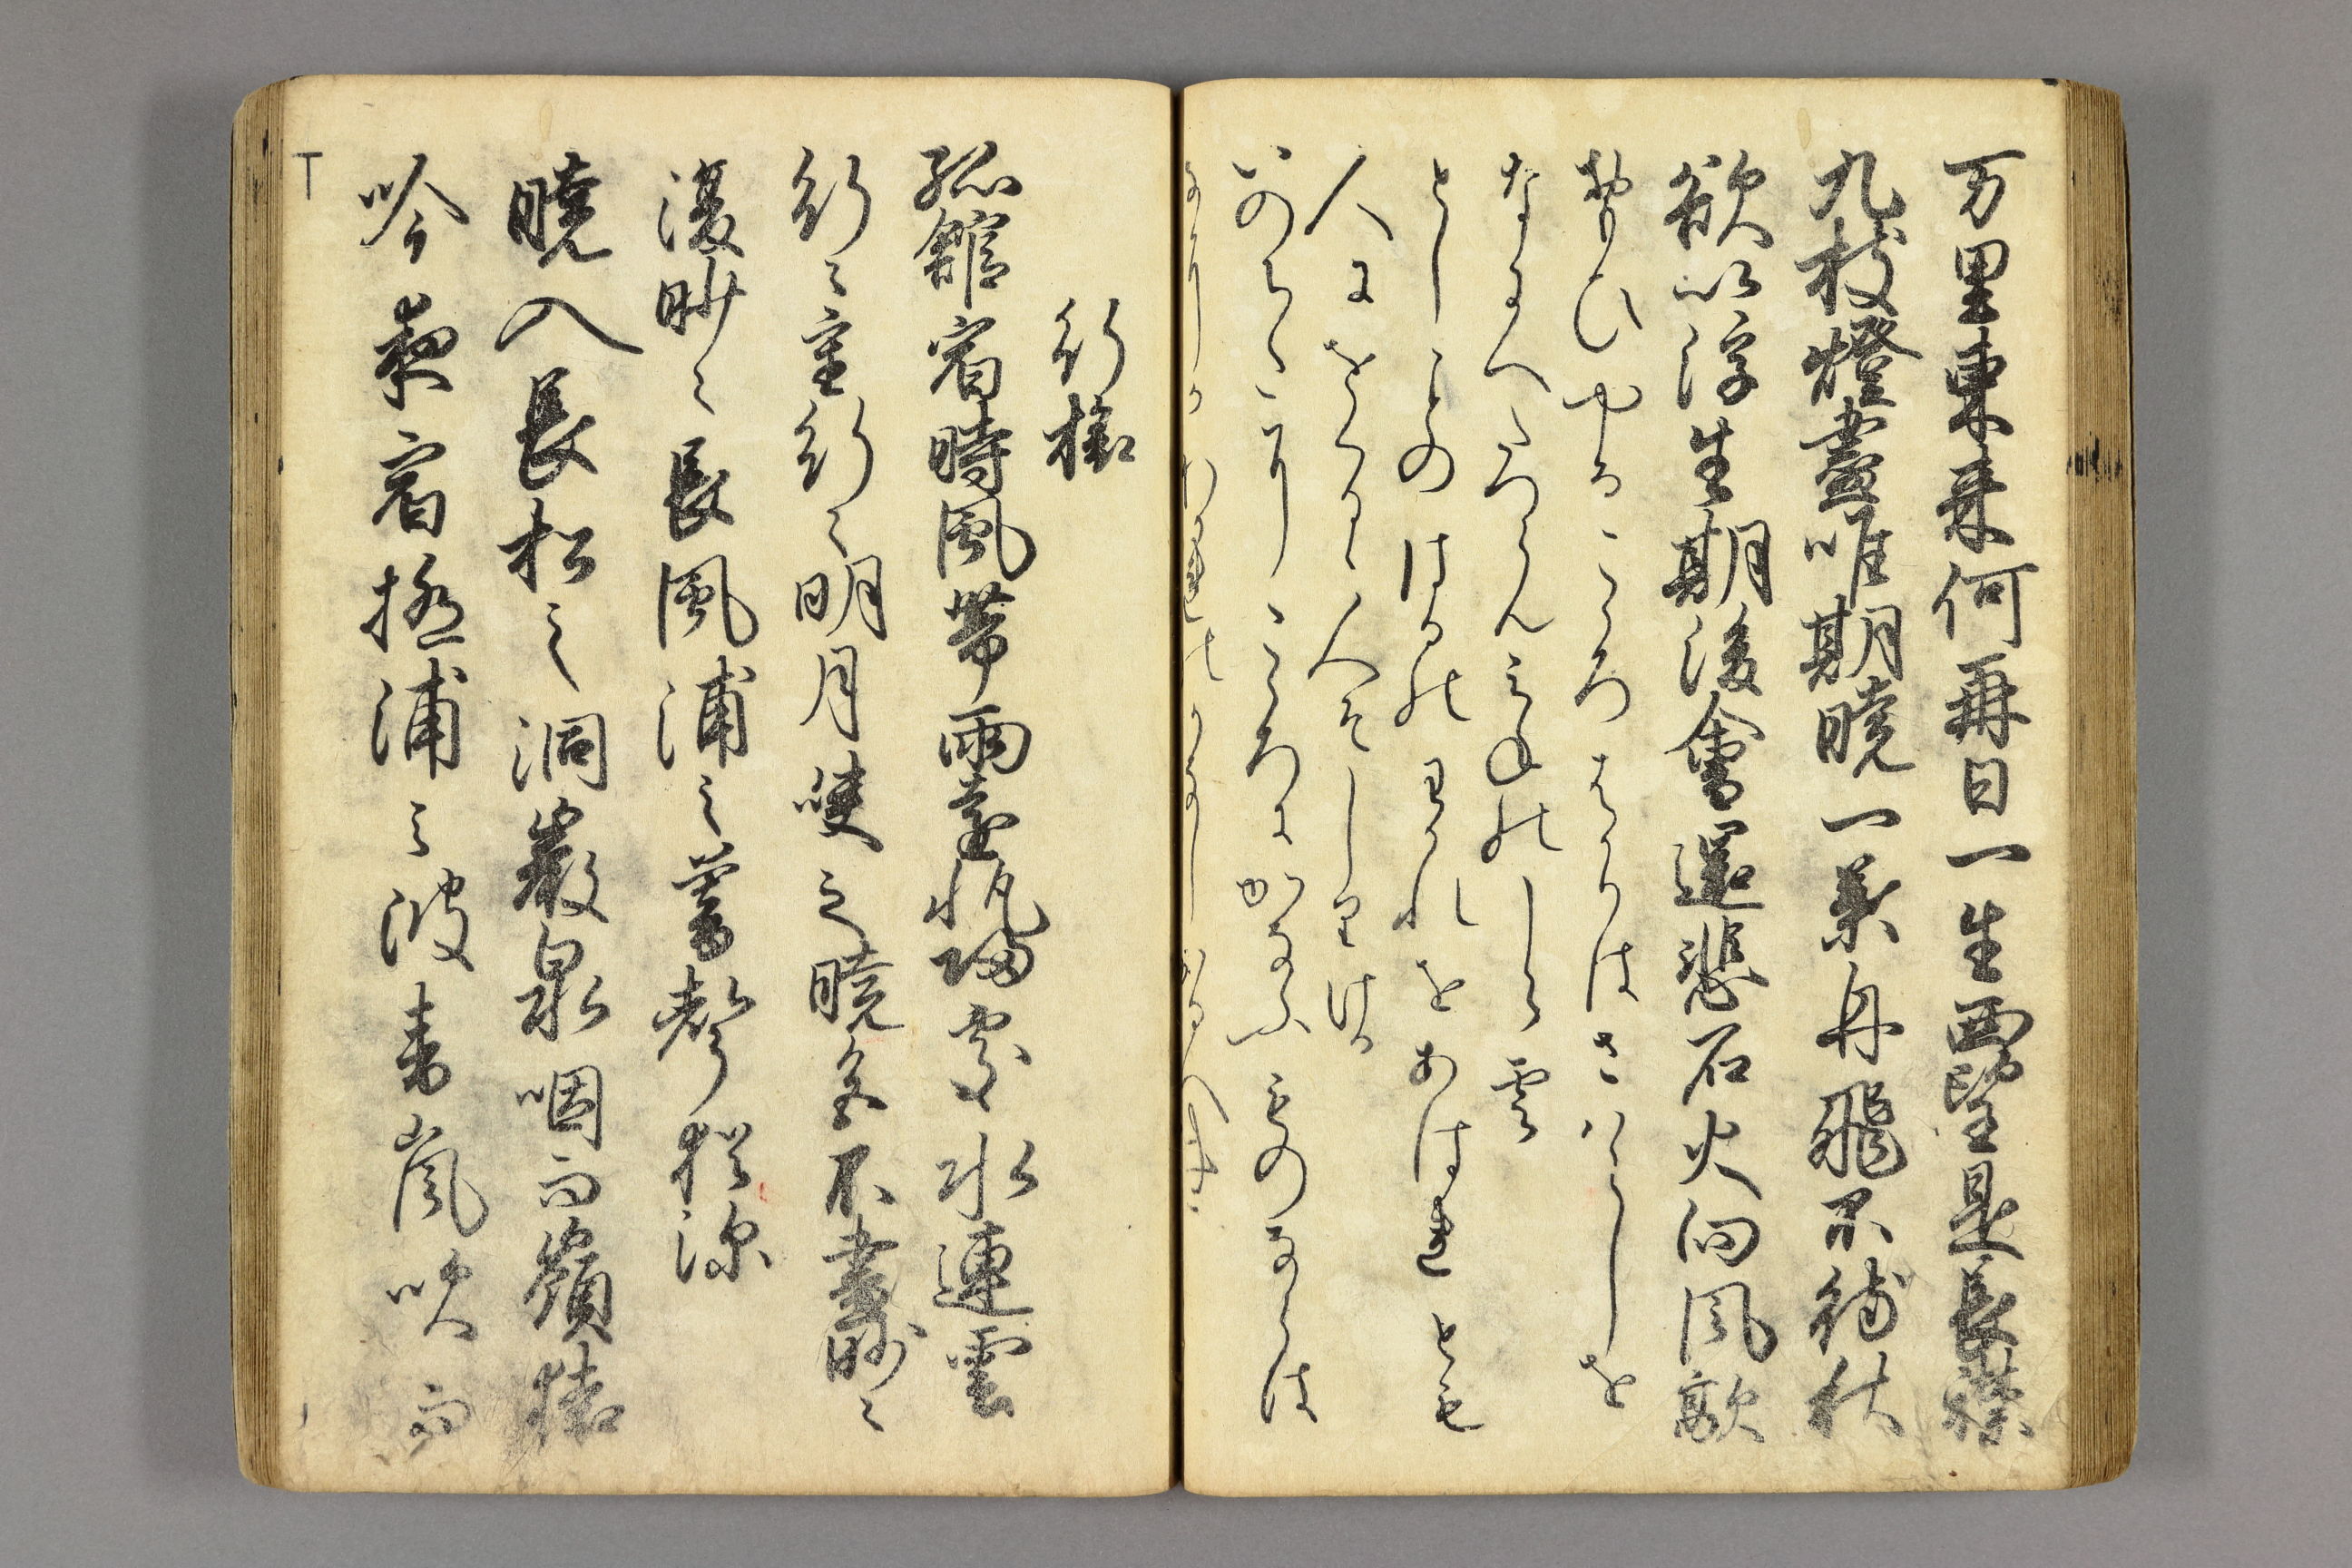 万里東来何再日一生西望是長襟
九枝燈盡唯期暁一葉舟飛不待秋
欲以浮生期後會還悲石火向風敲
おもひやるこゝろはかりはさはらしを
なにへたつらんみねのしら雲
としことのはるのわかれをあはれとも
人にをくるゝ人そしりける
いのちたにこゝろにかなふものならは
行旅
孤舘宿時風帶雨遠帆歸處水連雲
行〻重行〻明月峽之暁色不盡眇〻
復眇〻長風浦之暮聲猶深
暁入長松之洞巖泉咽而嶺猿
吟夜宿極浦之波青嵐吹而